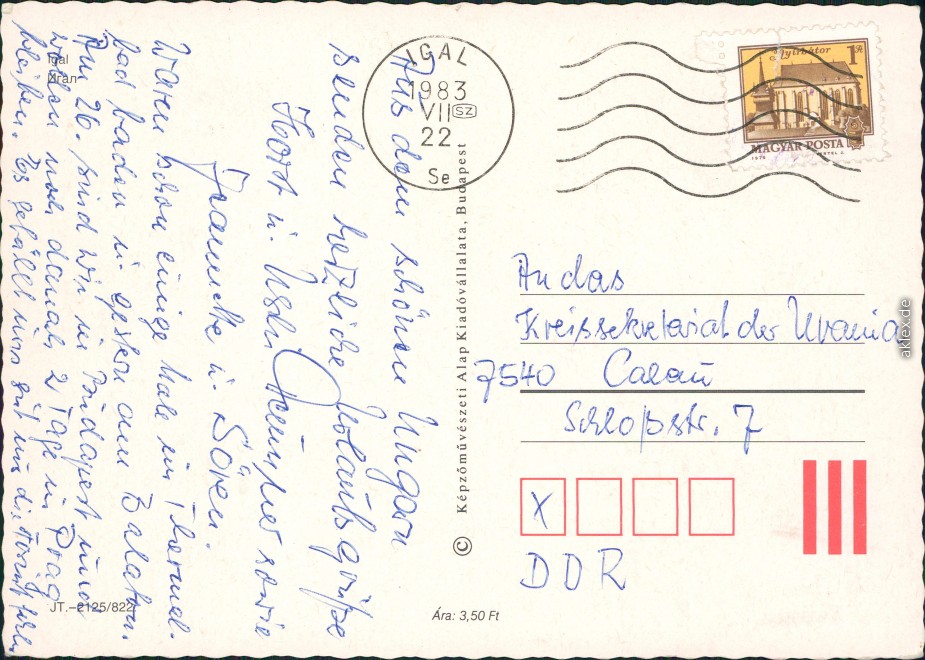 Igal
Игал
Aus dem schönen Ungarn
senden herzliche Urlaubsgrüße
Horst u. Uschi sowie
Jeannette u. Sören.
Waren schon einige Male im Thermal-
bad baden u. gestern am Balaton.
Am 26. sind wir in Budapest und
wollen noch danach 2 Tage in Prag
bleiben. Es gefällt uns gut und die
JT.–2125/822
Ára: 3,50 Ft
© Képzőművészeti Alap Kiadóvállalata, Budapest
IGAL
1983
VII SZ
22
Se
Nyírbátor 1Ft
MAGYAR POSTA
An das
Kreissekretariat der Urania
7540 Calau
Schloßstr. 7
X
DDR
aklex.de